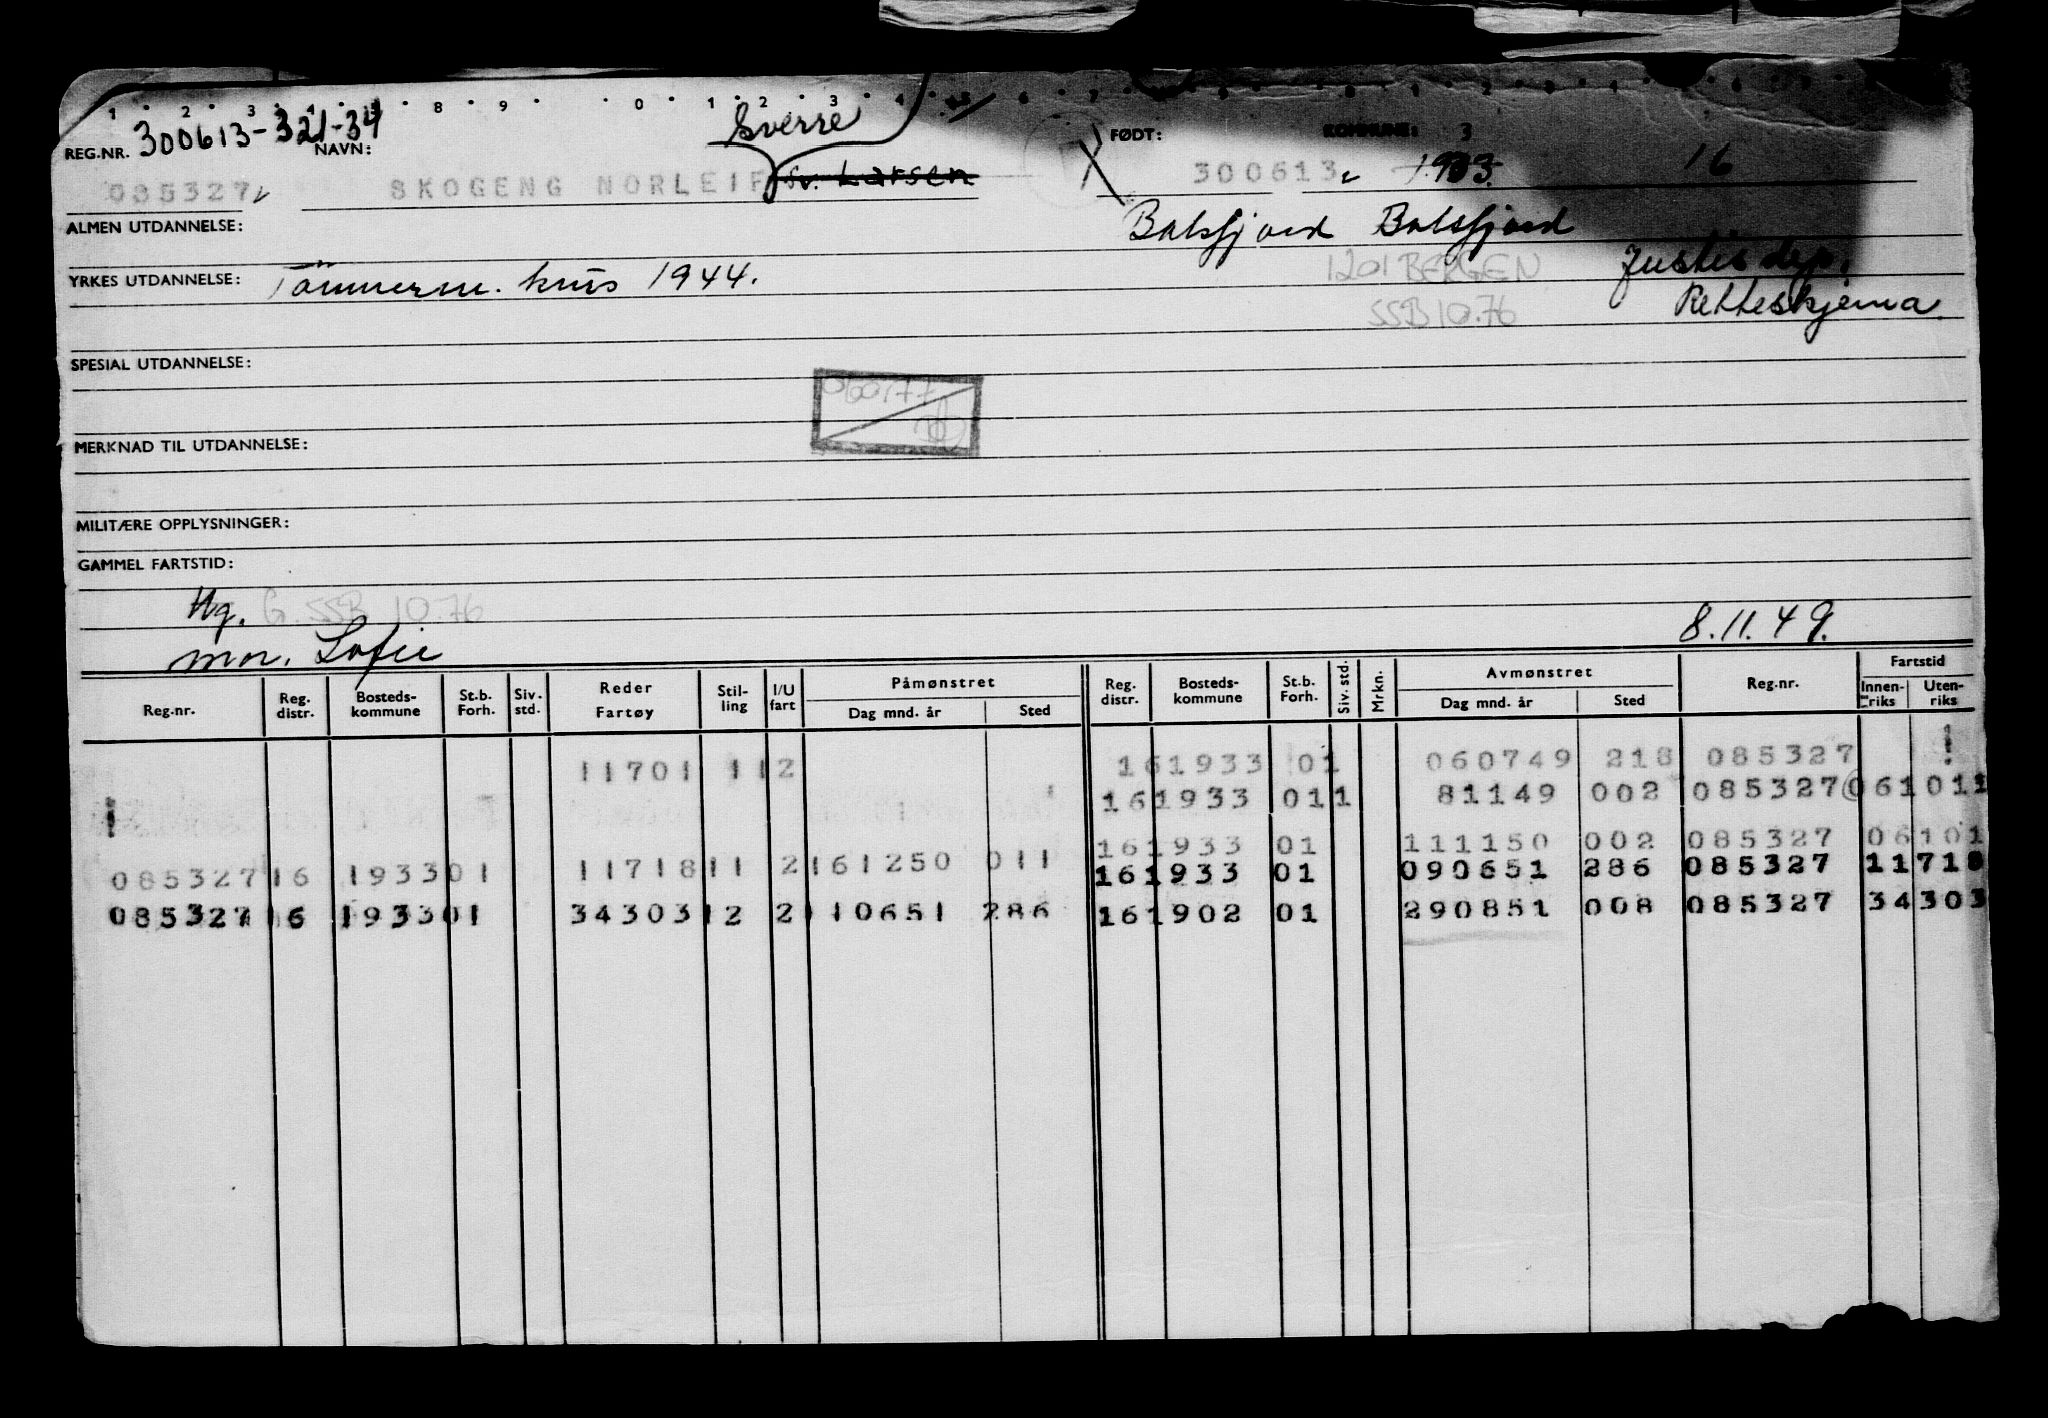 1 2 3 4 5 8 9 0 1 2 3 4 5 6 7
300613-321-34
REG.NR. NAVN: Sverre FØDT: KOMMUNE: 3
085327 SKOGENG NORLEIF Sv. Larsen 300613 1933 16
ALMEN UTDANNELSE: Balsfjord Balsfjord
YRKES UTDANNELSE: Tömmerm. kurs 1944. 1201 BERGEN Justisdep.
SSB 10.76 Retteskjema
SPESIAL UTDANNELSE:
MERKNAD TIL UTDANNELSE:
MILITÆRE OPPLYSNINGER:
GAMMEL FARTSTID:
Ug. G. SSB 10.76
mor. Sofie 8.11.49.
Reg.nr. Reg. distr. Bosteds-kommune St.b. Forh. Siv. std. Reder Fartøy Stil-ling I/U fart Påmønstret Dag mnd. år Sted Reg. distr. Bosteds-kommune St.b. Forh. Siv. std. Mrkn. Avmønstret Dag mnd. år Sted Reg.nr. Fartstid Innen-riks Uten-riks
11701 11 2 16 1933 01 060749 218 085327
16 1933 01 1 81149 002 085327 061011
16 1933 01 111150 002 085327 06101
085327 16 1933 01 11718 11 2 161250 011 16 1933 01 090651 286 085327 11718
085327 16 1933 01 34303 12 2 110651 286 16 1902 01 290851 008 085327 34303